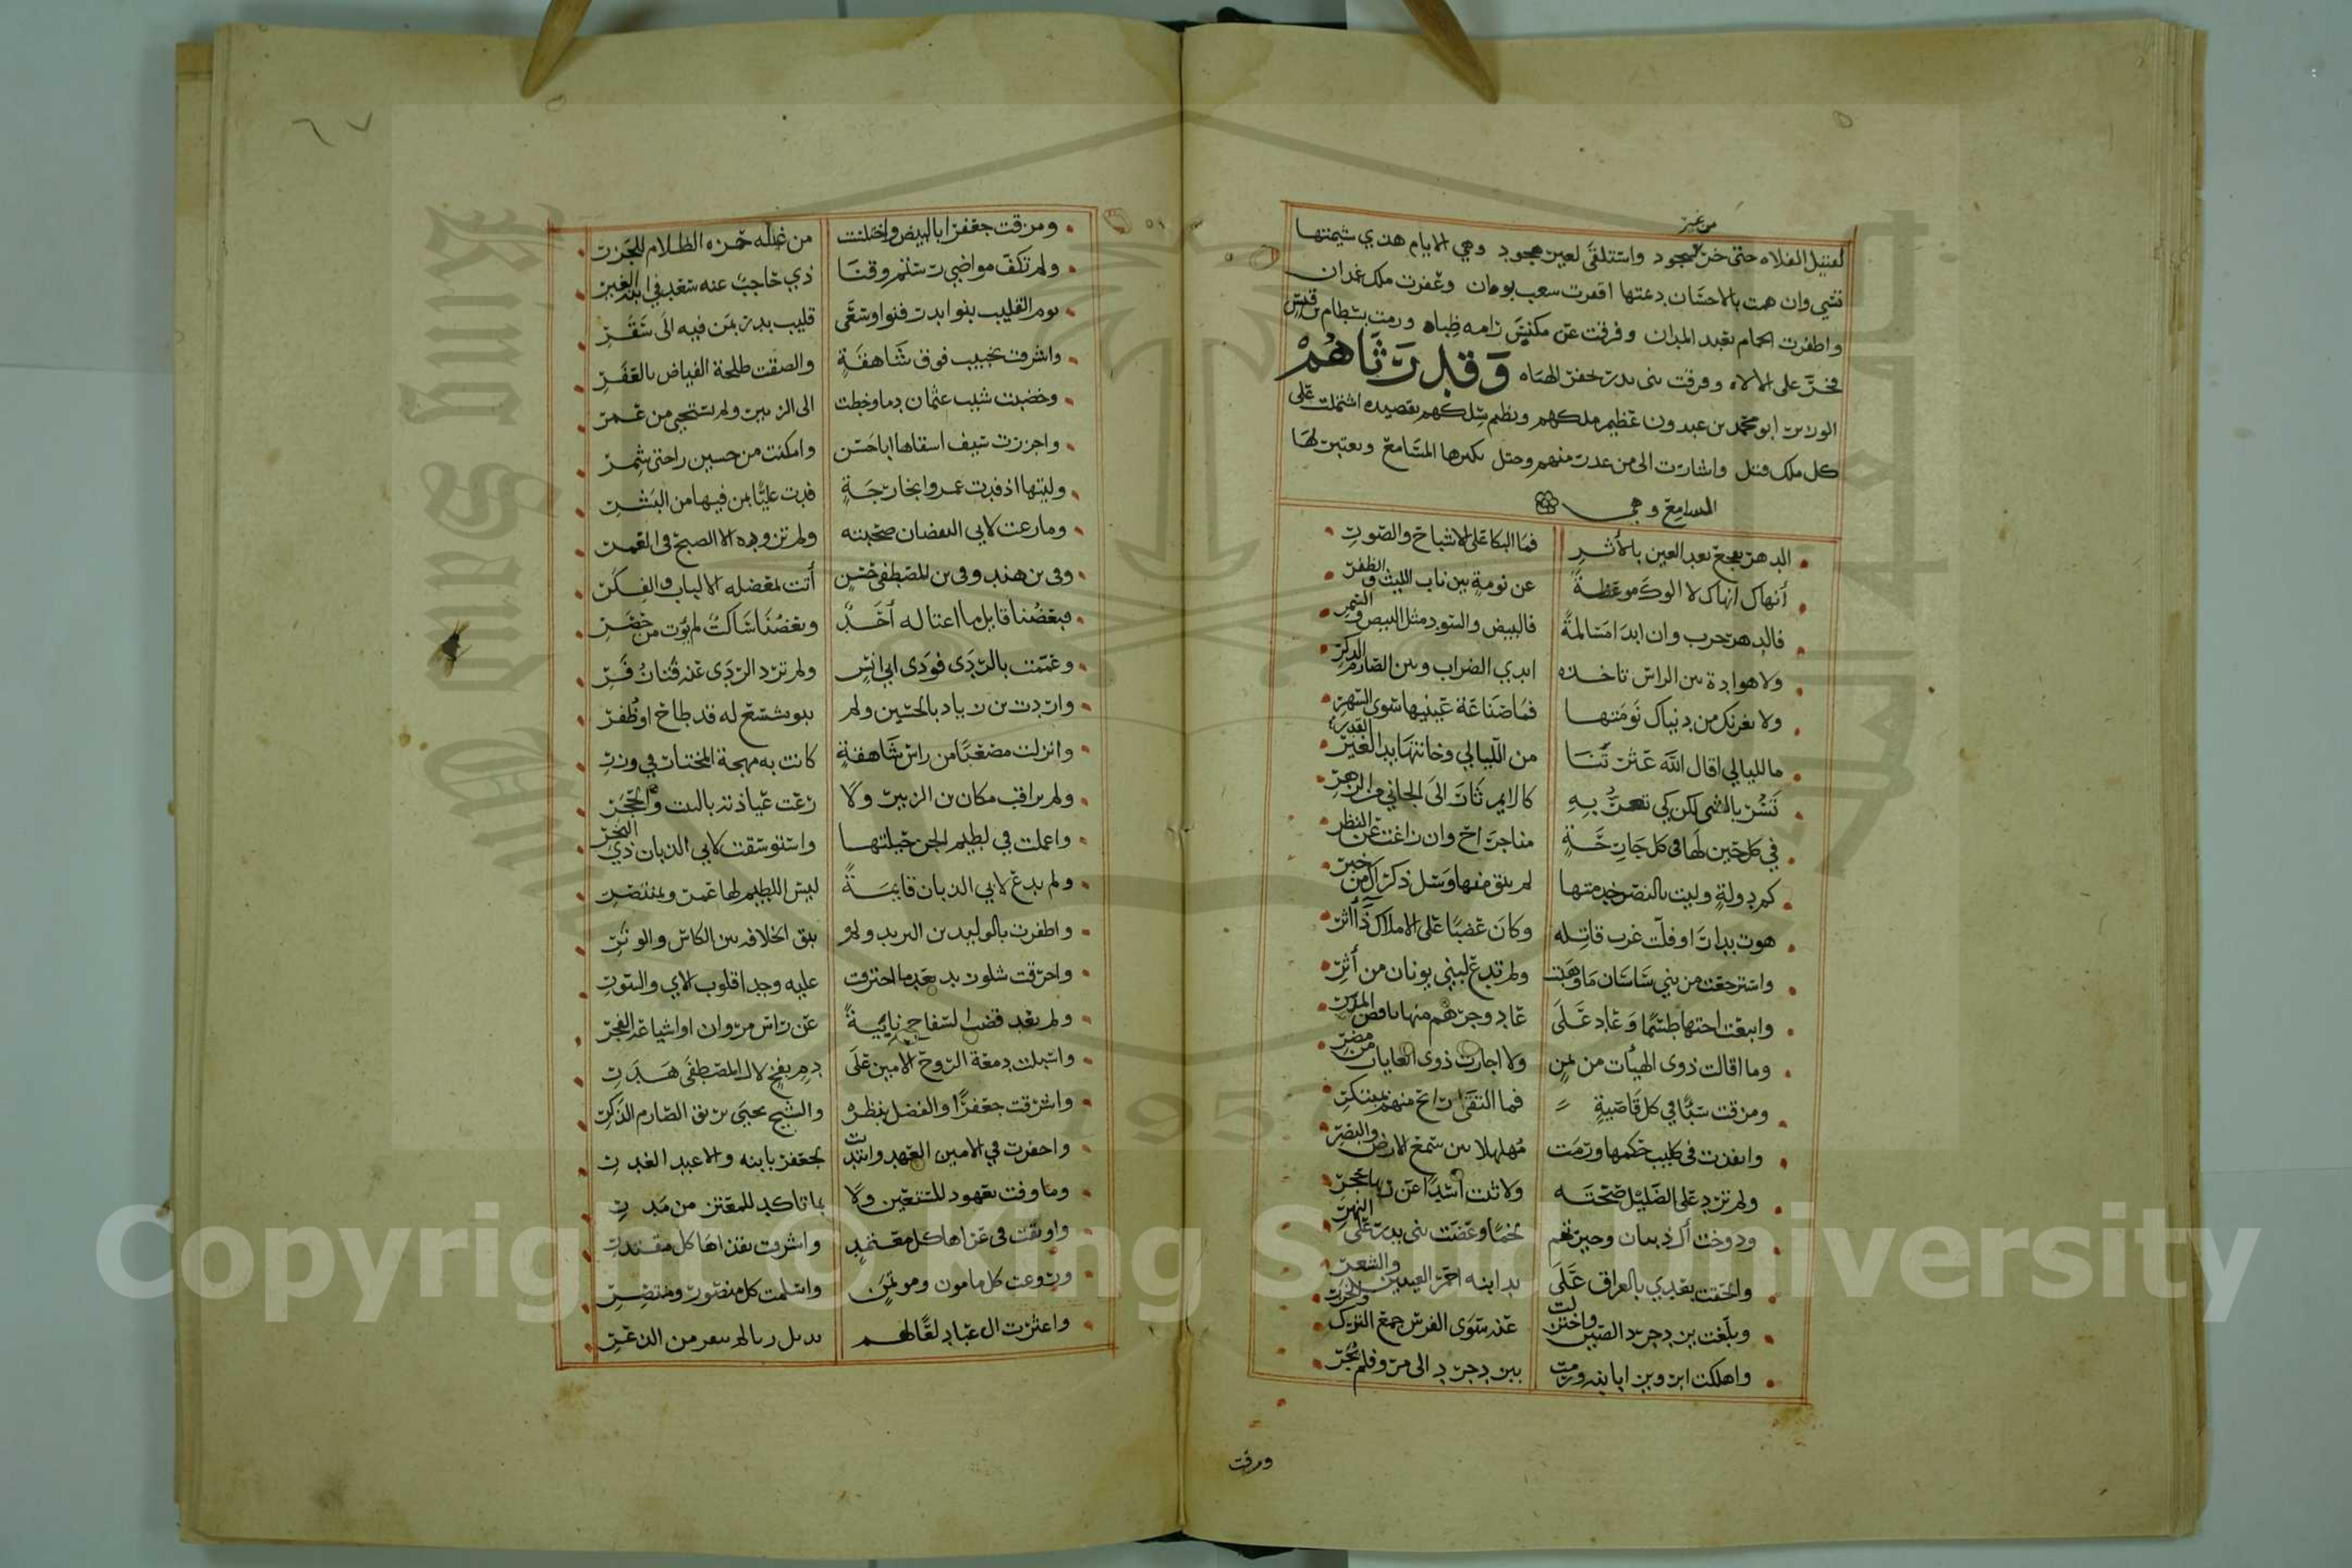 من غير
لقتيل الفلاه حتى خر لسجود واستلقى لعين هجود وهي الايام هذي شيمتها
تشي وان همت بالاحسان دعتها اقفرت سعب بوان وعفرت ملك غمدان
واطفرت الحمام بقيد الميدان وفرقت عن مكنس رامه ظباه ورمت بسطام بن قيس
فخر على الالاه وفرقت بنى بدر لحفر الهباه وقد رثاهم
الوزير ابو محمد بن عبدون عظيم ملكهم ونظم سلكهم بقصيده اشتملت على
كل ملك قتل واشارت الى من غدر منهم وختل تكبرها المسامع ويعتبر لها
السامع وهي
الدهر يفجع بعد العين بالأثر فما البكا على الاشباح والصور
أنهاك انهاك لا الوك موعظة عن نومة بين ناب الليث والظفر
فالدهر حرب وان ابدا مسالمة فالبيض والسود مثل البيض والسمر
ولا هوادة بين الراس تاخذه ايدي الضراب وبين الصارم الذكر
ولا يغرنك من دنياك نومتها فما صناعة عينيها سوى السهر
ما لليالي اقال الله عثرتنا من الليالي وخانتها يد الغير
تسر بالشي لكن كي تغر به كالايم ثار الى الجاني من الزهر
في كل حين لها في كل جارحة منا جراح وان زاغت عن النظر
كم دولة وليت بالنصر خدمتها لم تبق منها وسل ذكراك من خبر
هوت بدارا وفلت غرب قاتله وكان عضبا على الاملاك ذا أثر
واسترجعت من بني ساسان ما وهبت ولم تدع لبني يونان من أثر
واتبعت اختها طسما وعاد على عاد وجرهم منها ناقض المرر
وما اقالت ذوى الهيات من يمن ولا اجارت ذوى الغايات من مضر
ومزقت سبأ في كل قاصية فما التقى رائح منهم بمبتكر
وانفذت في كليب حكمها ورمت مهلهلا بين سمع الارض والبصر
ولم ترد على الضليل صحته ولا ثنت اسدا عن ربها حجر
ودوخت آل ذبيان وجيرتهم لخما وعضت بنى بدر على النهر
والحقت بعدي بالعراق على يد ابنه احمر العينين والشعر
وبلغت يزدجرد الصين واختزلت عنه سوى الفرس جمع الترك والخزر
واهلكت ابرويز ابا بنه ورمت بيزدجرد الى مرو فلم يحر
ومزقت
٦٧
ومزقت جعفرا بالبيض واختلت من غيله حمزه الظلام للجزر
ولم تكف مواضي رستم وقنا ذي حاجب عنه سعد في ابنه الغير
يوم القليب بنو بدر فنوا وسعى قليب بدر بمن فيه الى سقر
واشرفت بخبيب فوق شاهقة والصقت طلحة الفياض بالعفر
وخضبت شيب عثمان دما وخطت الى الزبير ولم تستحي من عمر
واجزرت سيف اشقاها ابا حسن وامكنت من حسين راحتى شمر
وليتها اذ فدت عمروا بخارجة فدت عليا بمن فيها من البشر
وما رعت لابي اليقضان صحبته ولم تزوده الا الصبح في الغمر
وفى بن هند وفى بن المصطفى حسن أتت بمعضله الالباب والفكر
فبعضنا قايل ما اغتاله أحد وبعضنا ساكت لم يؤت من حصر
وعممت بالردى فودى ابي انس ولم ترد الردى عنه قنا زفر
واردت بن زياد بالحسين ولم يبو بشسع له قد طاح او ظفر
وانزلت مصعبا من راس شاهقة كانت به مهجة المختار في وزر
ولم تراقب مكان بن الزبير ولا رعت عياذته بالبيت والحجر
واعملت في لطيم الجن حيلتها واستوسقت لابي الذبان ذي البخر
ولم تدع لابي الذبان قايمة ليس اللطيم لها عمرو بمنتصر
واظفرت بالوليد بن اليزيد ولم يبق الخلافه بين الكاس والوتر
واحرقت شلو زيد بعد ما احترقت عليه وجدا قلوب الاي والسور
ولم تعد قضب السفاح نابية عن راس مروان او اشياعه الفجر
واسبلت دمعة الروح الامين على دم بفخ لال المصطفى هدر
واشرقت جعفرا والفضل ينظره والشيخ يحيى بريق الصارم الذكر
واخفرت في الامين العهد وانتدبت لجعفر بابنه والاعبد الغدر
وما وفت بعهود للمستعين ولا بما تاكد للمعتز من مرر
واوثقت في عراها كل معتمد واشرقت بقذاها كل مقتدر
وروعت كل مامون ومؤتمن واسلمت كل منصور ومنتصر
واعثرت ال عباد لعا لهم